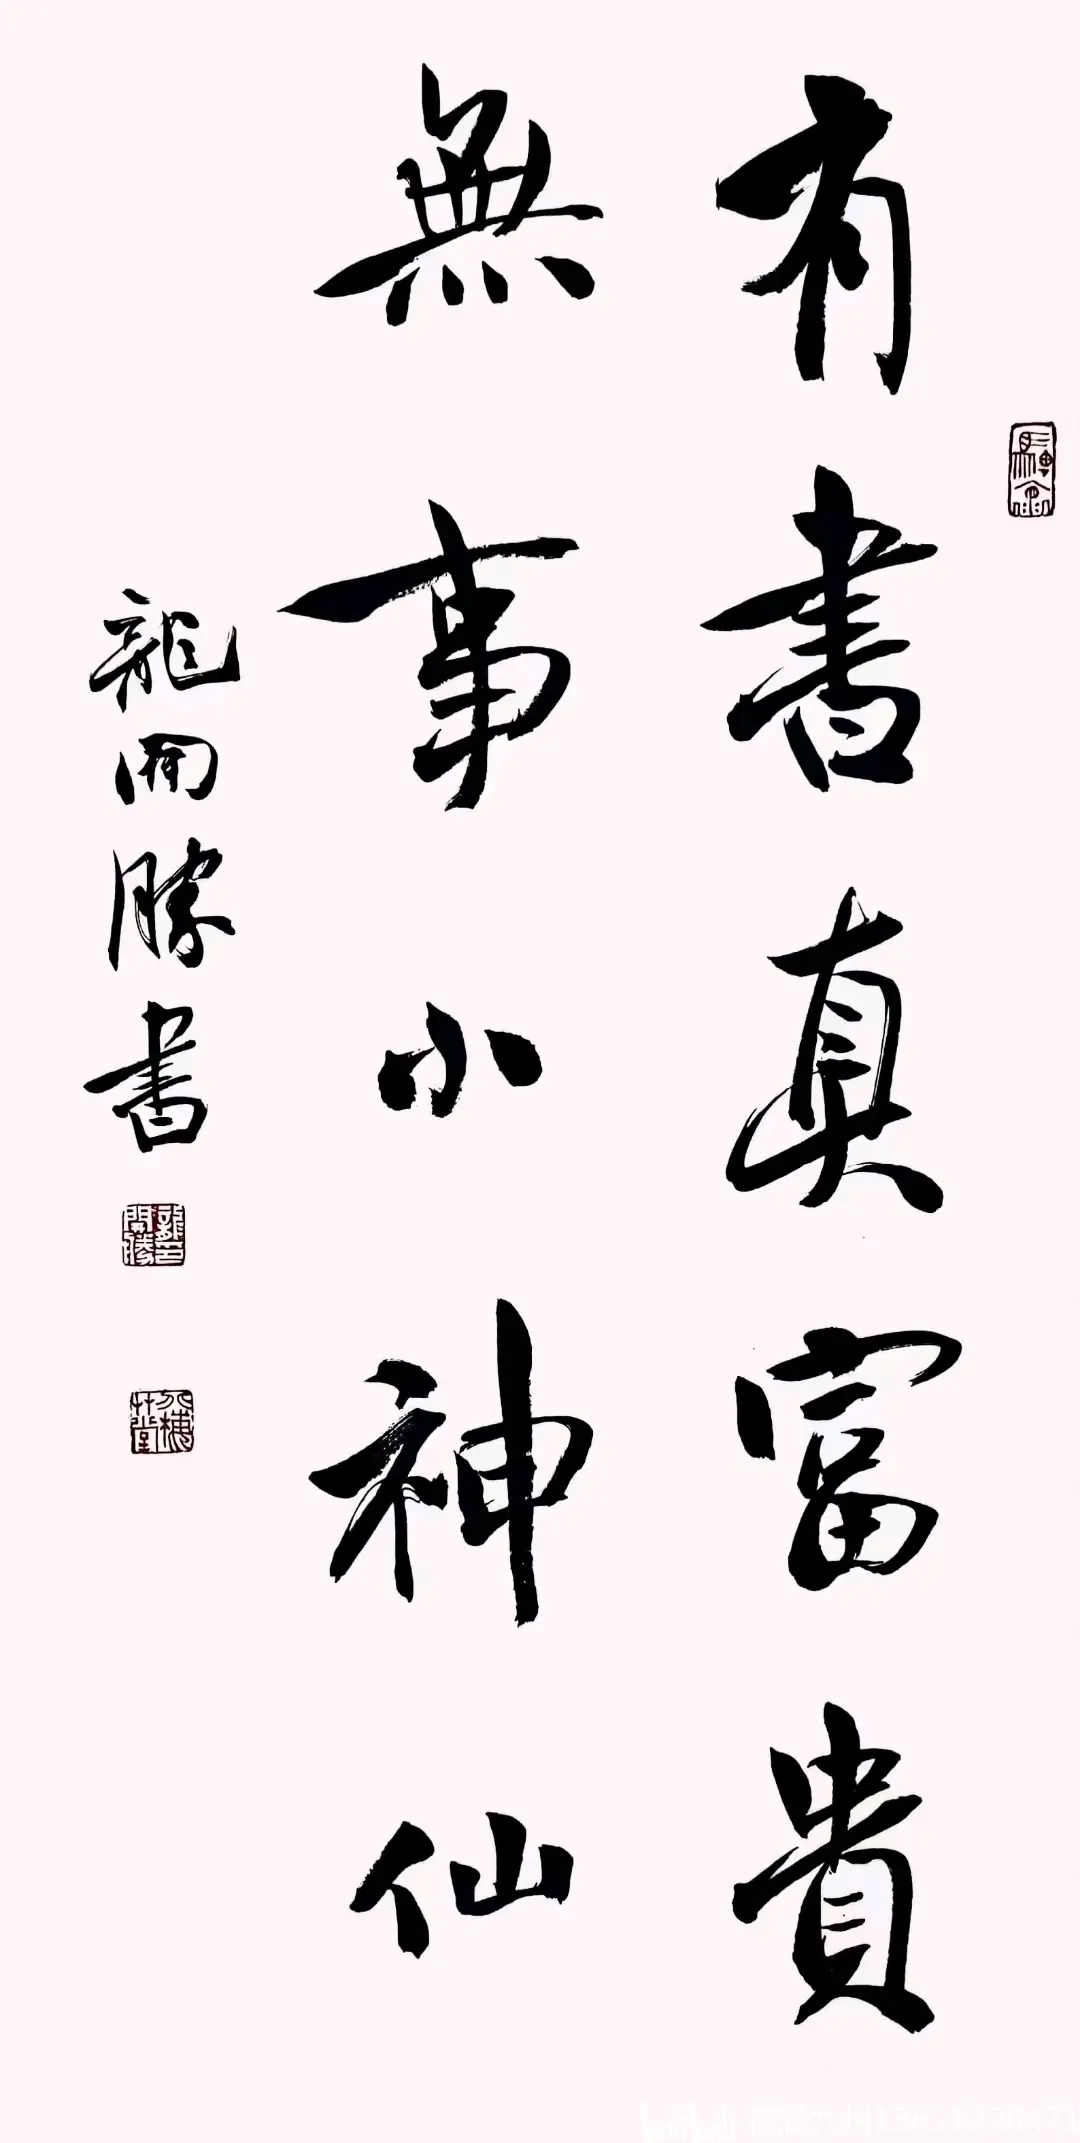 有書真富貴
無事小神仙
龍開勝書